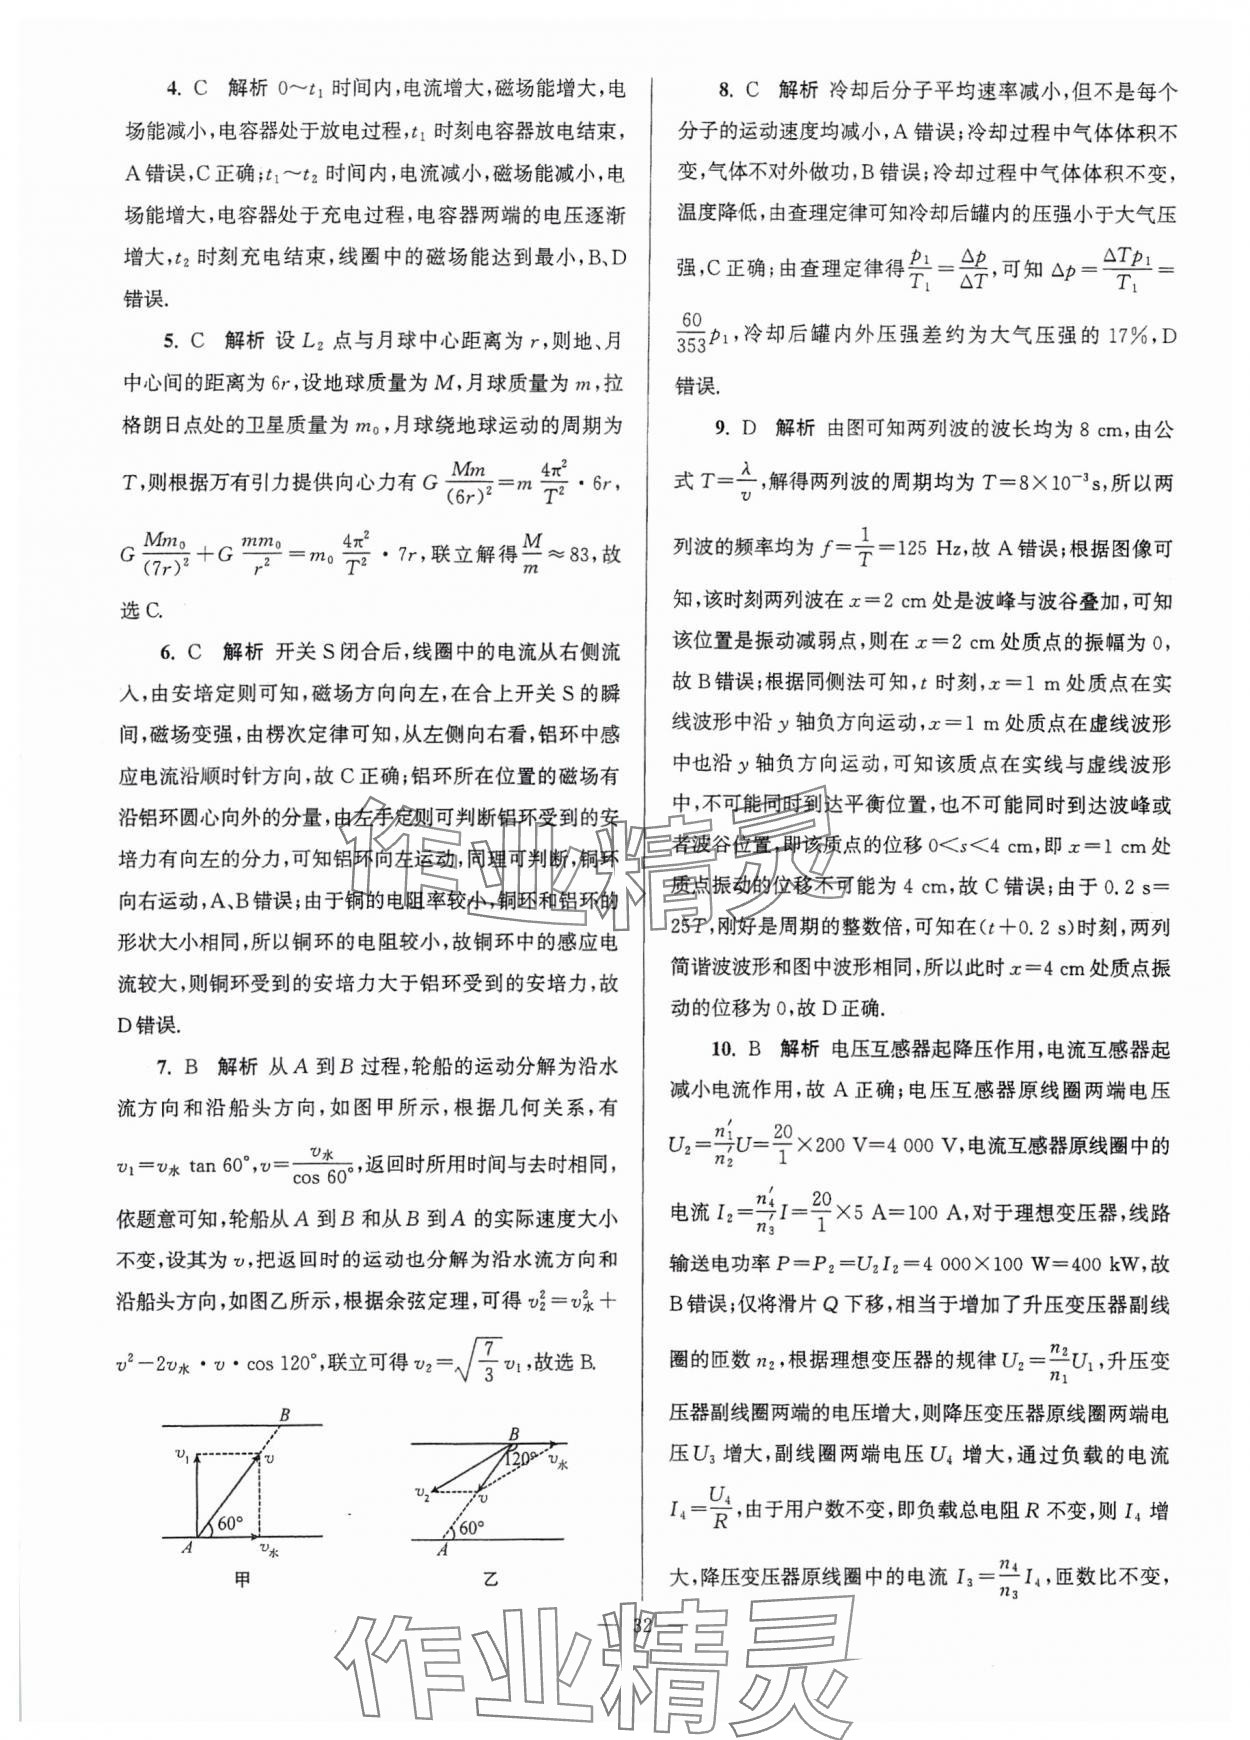 4. C 解析 0～t₁ 时间内,电流增大,磁场能增大,电
场能减小,电容器处于放电过程,t₁ 时刻电容器放电结束,
A错误,C正确;t₁～t₂ 时间内,电流减小,磁场能减小,电
场能增大,电容器处于充电过程,电容器两端的电压逐渐
增大,t₂ 时刻充电结束,线圈中的磁场能达到最小,B、D
错误.
5. C 解析 设 L₂ 点与月球中心距离为 r,则地、月
中心间的距离为 6r,设地球质量为 M,月球质量为 m,拉
格朗日点处的卫星质量为 m₀,月球绕地球运动的周期为
T,则根据万有引力提供向心力有 G Mm/(6r)²=m 4π²/T²·6r,
G Mm₀/(7r)²+G mm₀/r²=m₀ 4π²/T²·7r,联立解得 M/m≈83,故
选C.
6. C 解析 开关S闭合后,线圈中的电流从右侧流
入,由安培定则可知,磁场方向向左,在合上开关S的瞬
间,磁场变强,由楞次定律可知,从左侧向右看,铝环中感
应电流沿顺时针方向,故C正确;铝环所在位置的磁场有
沿铝环圆心向外的分量,由左手定则可判断铝环受到的安
培力有向左的分力,可知铝环向左运动,同理可判断,铜环
向右运动,A、B错误;由于铜的电阻率较小,铜环和铝环的
形状大小相同,所以铜环的电阻较小,故铜环中的感应电
流较大,则铜环受到的安培力大于铝环受到的安培力,故
D错误.
7. B 解析 从A到B过程,轮船的运动分解为沿水
流方向和沿船头方向,如图甲所示,根据几何关系,有
v₁=v水 tan 60°,v=v水/cos 60°,返回时所用时间与去时相同,
依题意可知,轮船从A到B和从B到A的实际速度大小
不变,设其为 v,把返回时的运动也分解为沿水流方向和
沿船头方向,如图乙所示,根据余弦定理,可得 v₂²=v水²+
v²－2v水·v·cos 120°,联立可得 v₂=√(7/3) v₁,故选B.
B
v₁
v
60°
A
v水
甲
B
120°
v水
v₂
v
60°
A
乙
8. C 解析 冷却后分子平均速率减小,但不是每个
分子的运动速度均减小,A错误;冷却过程中气体体积不
变,气体不对外做功,B错误;冷却过程中气体体积不变,
温度降低,由查理定律可知冷却后罐内的压强小于大气压
强,C正确;由查理定律得 p₁/T₁=Δp/ΔT,可知 Δp=ΔTp₁/T₁=
60/353 p₁,冷却后罐内外压强差约为大气压强的17%,D
错误.
9. D 解析 由图可知两列波的波长均为 8 cm,由公
式 T=λ/v,解得两列波的周期均为 T=8×10⁻³s,所以两
列波的频率均为 f=1/T=125 Hz,故A错误;根据图像可
知,该时刻两列波在 x=2 cm 处是波峰与波谷叠加,可知
该位置是振动减弱点,则在 x=2 cm 处质点的振幅为 0,
故B错误;根据同侧法可知,t 时刻,x=1 m 处质点在实
线波形中沿 y 轴负方向运动,x=1 m 处质点在虚线波形
中也沿 y 轴负方向运动,可知该质点在实线与虚线波形
中,不可能同时到达平衡位置,也不可能同时到达波峰或
者波谷位置,即该质点的位移 0<s<4 cm,即 x=1 cm 处
质点振动的位移不可能为 4 cm,故C错误;由于 0.2 s=
25T,刚好是周期的整数倍,可知在(t+0.2 s)时刻,两列
简谐波波形和图中波形相同,所以此时 x=4 cm 处质点振
动的位移为 0,故D正确.
10. B 解析 电压互感器起降压作用,电流互感器起
减小电流作用,故A正确;电压互感器原线圈两端电压
U₂=n₁′/n₂′ U=20/1×200 V=4 000 V,电流互感器原线圈中的
电流 I₂=n₄′/n₃′ I=20/1×5 A=100 A,对于理想变压器,线路
输送电功率 P=P₂=U₂I₂=4 000×100 W=400 kW,故
B错误;仅将滑片 Q 下移,相当于增加了升压变压器副线
圈的匝数 n₂,根据理想变压器的规律 U₂=n₂/n₁ U₁,升压变
压器副线圈两端的电压增大,则降压变压器原线圈两端电
压 U₃ 增大,副线圈两端电压 U₄ 增大,通过负载的电流
I₄=U₄/R,由于用户数不变,即负载总电阻 R 不变,则 I₄ 增
大,降压变压器原线圈中的电流 I₃=n₄/n₃ I₄,匝数比不变,
— 32 —
作业精灵
作业精灵